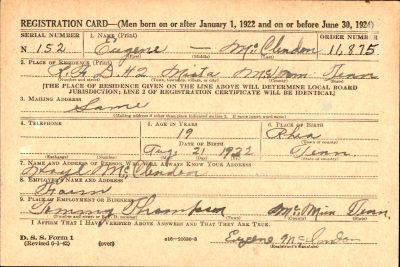 REGISTRATION CARD—(Men born on or after January 1, 1922 and on or before June 30, 1924)
SERIAL NUMBER 1. NAME (Print) ORDER NUMBER
N 152 Eugene — McClendon 11,875
(First) (Middle) (Last)
2. PLACE OF RESIDENCE (Print)
R.F.D. #2 McMinn Tenn
(Number and street) (Town, township, village, or city) (County) (State)
[THE PLACE OF RESIDENCE GIVEN ON THE LINE ABOVE WILL DETERMINE LOCAL BOARD
JURISDICTION; LINE 2 OF REGISTRATION CERTIFICATE WILL BE IDENTICAL]
3. MAILING ADDRESS
Same
[Mailing address if other than place indicated on line 2. If same, insert word same]
4. TELEPHONE 5. AGE IN YEARS 6. PLACE OF BIRTH
19 Rhea
DATE OF BIRTH
Aug 21 1922 Tenn
(Exchange) (Number) (Mo.) (Day) (Yr.) (State or country)
7. NAME AND ADDRESS OF PERSON WHO WILL ALWAYS KNOW YOUR ADDRESS
McClendon
8. EMPLOYER'S NAME AND ADDRESS
Farm
9. PLACE OF EMPLOYMENT OR BUSINESS
Tommy Thompson McMinn Tenn.
(Number and street or R. F. D. number) (Town) (County) (State)
I AFFIRM THAT I HAVE VERIFIED ABOVE ANSWERS AND THAT THEY ARE TRUE.
D. S. S. Form 1
(Revised 6-1-42) (over) Eugene McClendon
(Registrant's signature)